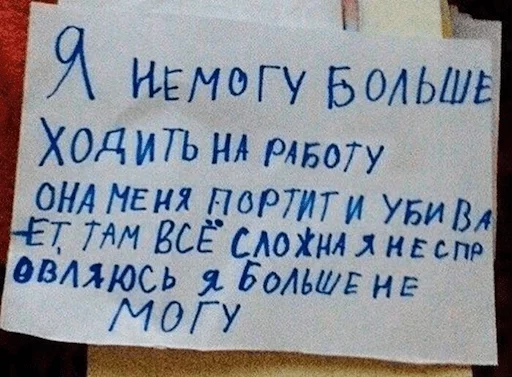 Я НЕМОГУ БОЛЬШЕ
ХОДИТЬ НА РАБОТУ
ОНА МЕНЯ ПОРТИТ И УБИВА
ЕТ, ТАМ ВСЁ СЛОЖНА Я НЕ СПР
ОВЛЯЮСЬ Я БОЛЬШЕ НЕ
МОГУ